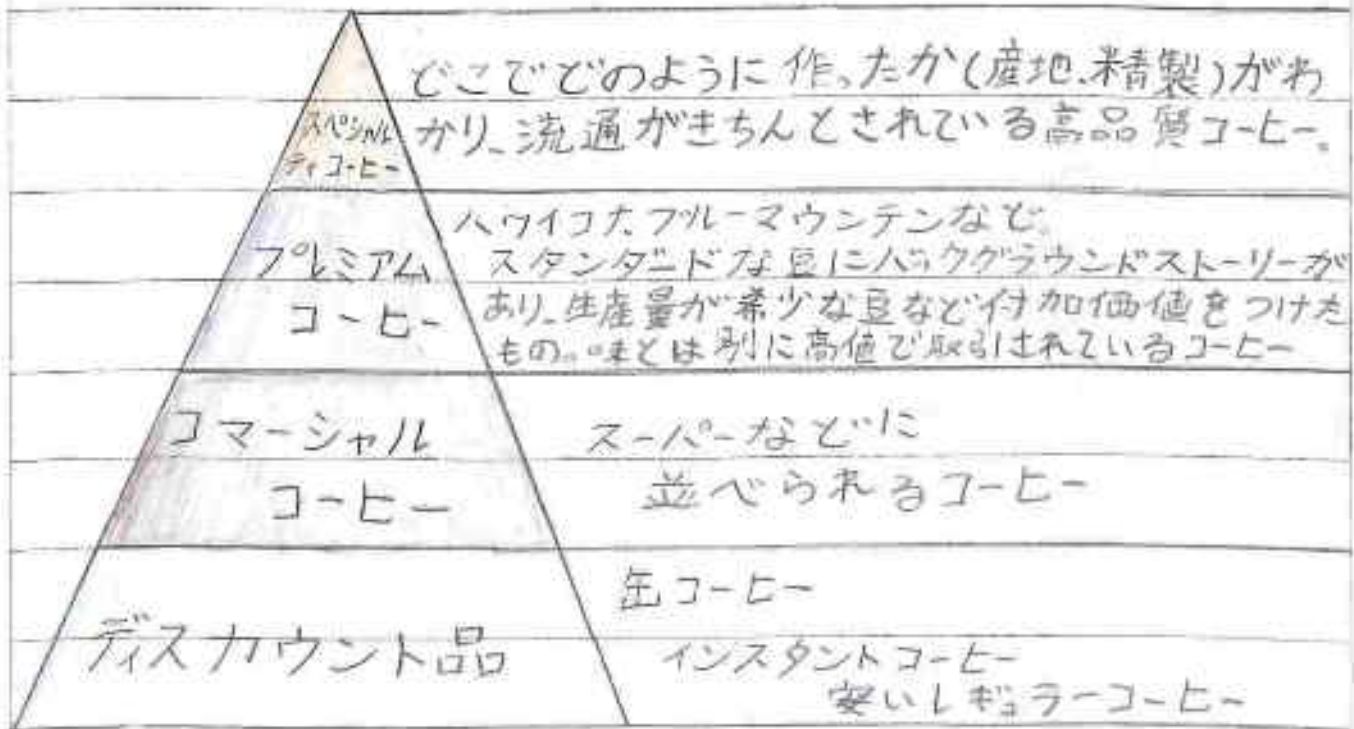 スペシャル
ティコーヒー
どこでどのように作ったか(産地、精製)がわ
かり、流通がきちんとされている高品質コーヒー。
プレミアム
コーヒー
ハワイコナ、ブルーマウンテンなど。
スタンダードな豆にバックグラウンドストーリーが
あり、生産量が希少な豆など付加価値をつけた
もの。味とは別に高値で取引されているコーヒー
コマーシャル
コーヒー
スーパーなどに
並べられるコーヒー
ディスカウント品
缶コーヒー
インスタントコーヒー
安いレギュラーコーヒー